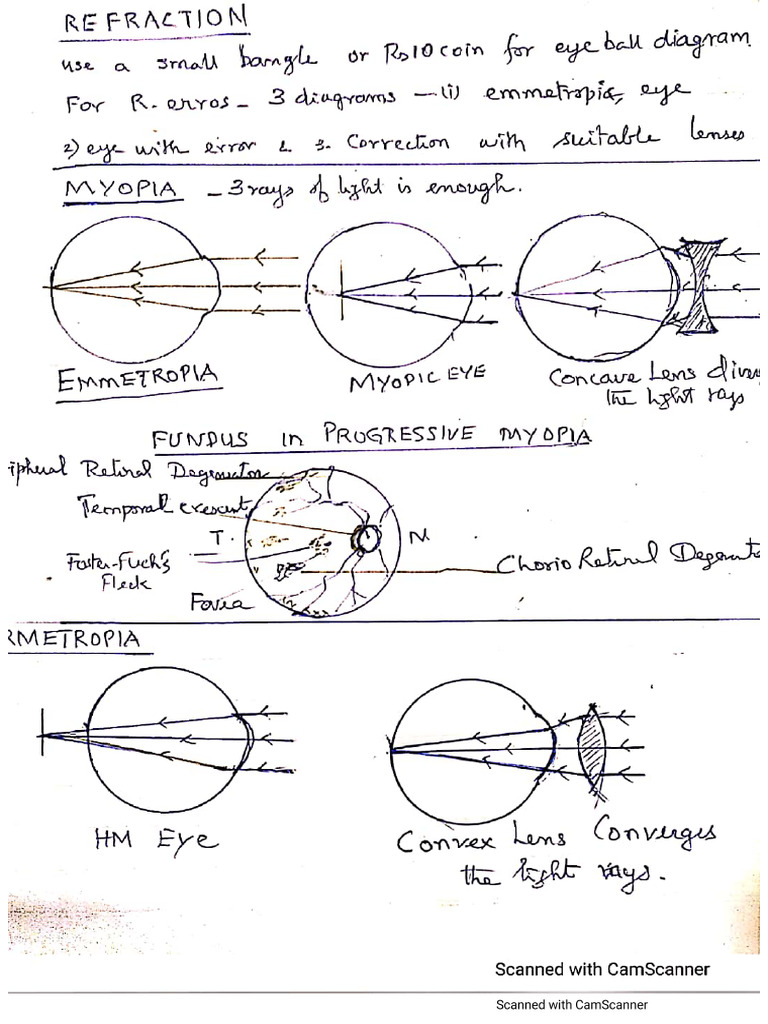 REFRACTION
use a small bangle or Rs10 coin for eye ball diagram.
For R. erros - 3 diagrams - (i) emmetropia, eye
2) eye with error & 3. Correction with suitable lenses
MYOPIA - 3 rays of light is enough.
EMMETROPIA
MYOPIC EYE
Concave Lens diver
the light rays
FUNDUS in PROGRESSIVE MYOPIA
ipheral Retinal Degeneration
Temporal crescent
T.
N
Foster-Fuch's
Fleck
Chorio Retinal Degenerat
Fovea
RMETROPIA
HM Eye
Convex Lens Converges
the light rays.
Scanned with CamScanner
Scanned with CamScanner